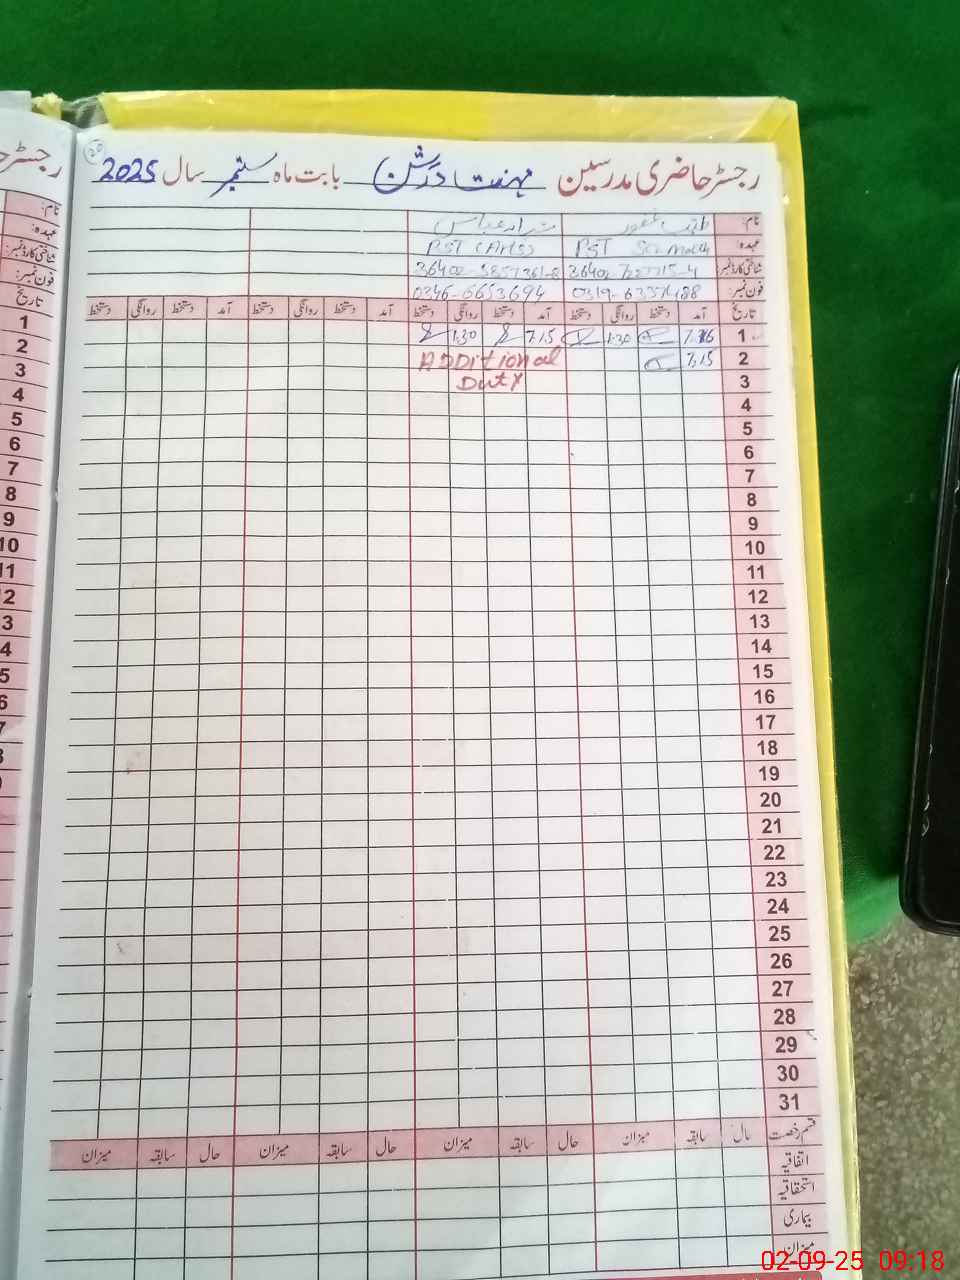 رجسٹر حاضری مدرسین مہنت درشن بابت ماہ ستمبر سال 2025
20
نام:
عہدہ: PST Sci Math PST (Arts)
شناختی کارڈ نمبر:
فون نمبر: 0346-6653694
تاریخ آمد دستخط روانگی دستخط آمد دستخط روانگی دستخط آمد دستخط روانگی دستخط آمد دستخط روانگی دستخط
1 1:30 7:15 1:30
2 7:15 Additional
3 Duty
4
5
6
7
8
9
10
11
12
13
14
15
16
17
18
19
20
21
22
23
24
25
26
27
28
29
30
31
قسم رخصت حال سابقہ میزان حال سابقہ میزان حال سابقہ میزان حال سابقہ میزان
اتفاقیہ
استحقاقیہ
بیماری
میزان
رجسٹر
نام:
عہدہ:
شناختی کارڈ نمبر:
فون نمبر:
تاریخ
1
2
3
4
5
6
7
8
9
10
02-09-25 09:18